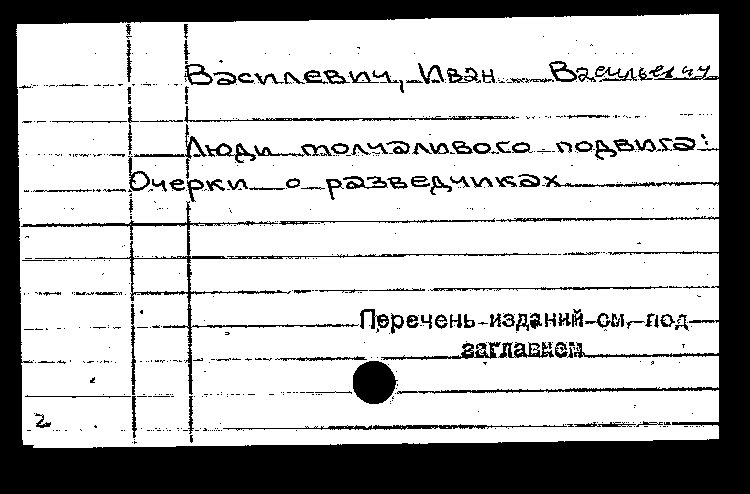 Василевич, Иван Васильевич
Люди молчаливого подвига:
Очерки о разведчиках
Перечень изданий см. под
заглавием
2